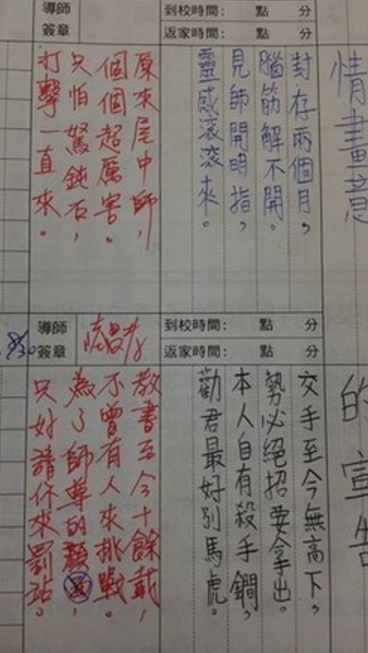 導師
簽章
到校時間： 點 分
返家時間： 點 分
情畫意
封存兩個月，
腦筋解不開。
見師開明指，
靈感滾滾來。
原來尾中師，
個個超厲害。
只怕駑鈍石，
打擊一直來。
導師
簽章
到校時間： 點 分
返家時間： 點 分
的宣告
交手至今無高下，
勢必絕招要拿出。
本人自有殺手鐧，
勸君最好別馬虎。
教書至今十餘載，
不曾有人來挑戰。
為了師尊的顏
只好請你來罰站。